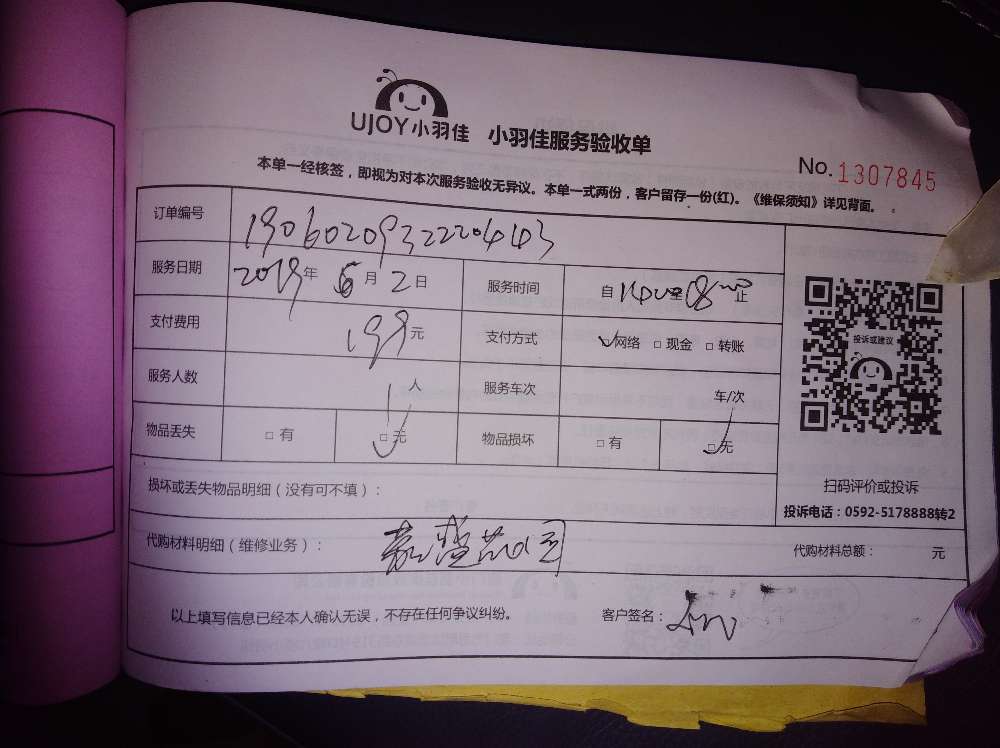 UJOY小羽佳 小羽佳服务验收单
No. 1307845
本单一经核签，即视为对本次服务验收无异议。本单一式两份，客户留存一份(红)。《维保须知》详见背面。
订单编号 19060209322204443
服务日期 2019年6月2日 服务时间 自 至18 止
支付费用 199元 支付方式 ☑网络 □现金 □转账
服务人数 1人 服务车次 车/次
物品丢失 □有 ☑无 物品损坏 □有 ☑无
投诉或建议
扫码评价或投诉
投诉电话：0592-5178888转2
损坏或丢失物品明细（没有可不填）：
代购材料明细（维修业务）： 代购材料总额： 元
以上填写信息已经本人确认无误，不存在任何争议纠纷。 客户签名：